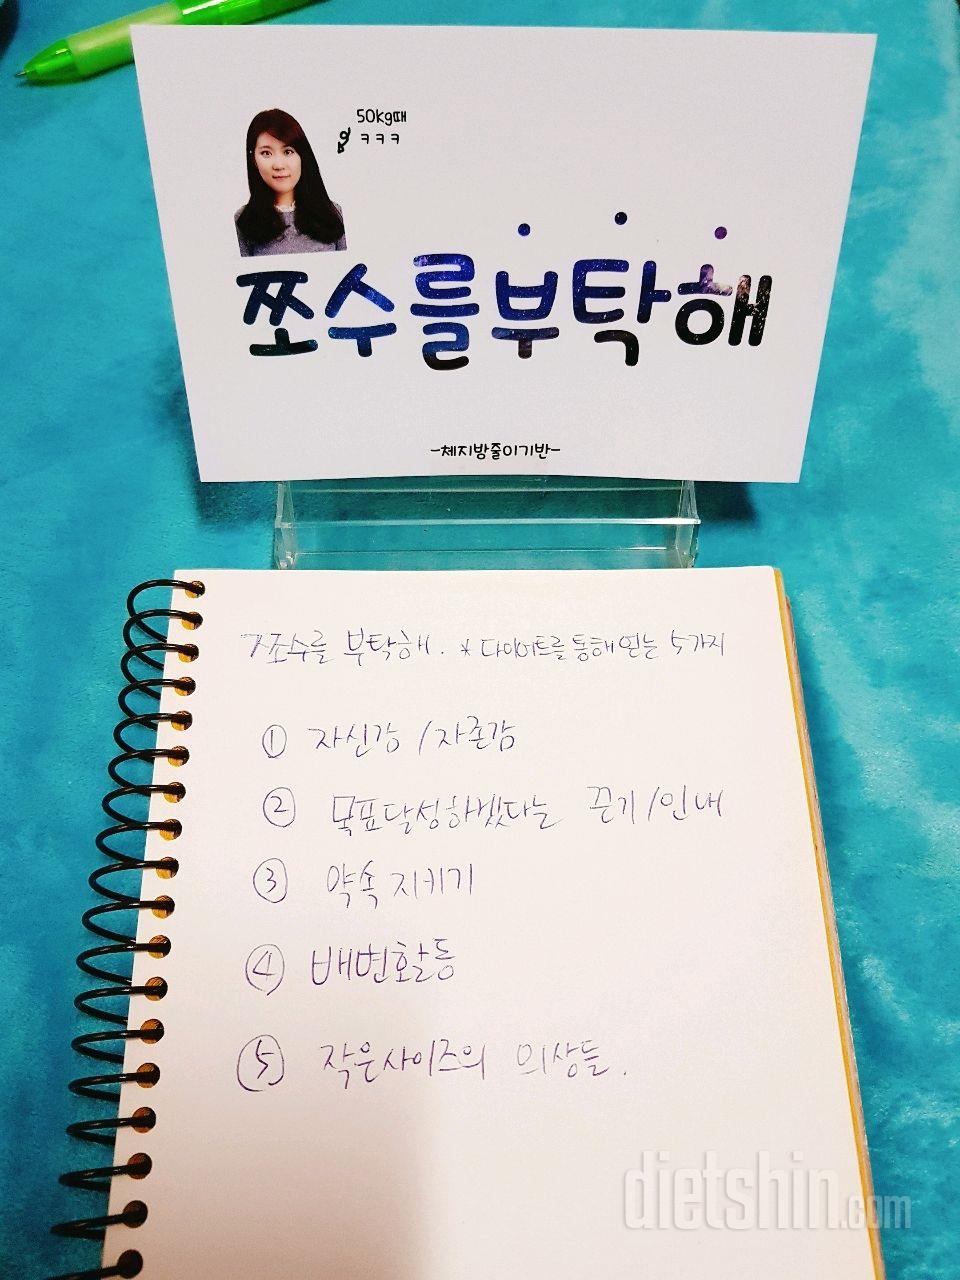 50kg때
ㅋㅋㅋ
쪼수를부탁해
-체지방줄이기반-
7조수를 부탁해. * 다이어트를 통해 얻는 5가지
① 자신감 / 자존감
② 목표달성하겠다는 끈기/인내
③ 약속 지키기
④ 배변활동
⑤ 작은사이즈의 의상들.
dietshin.com